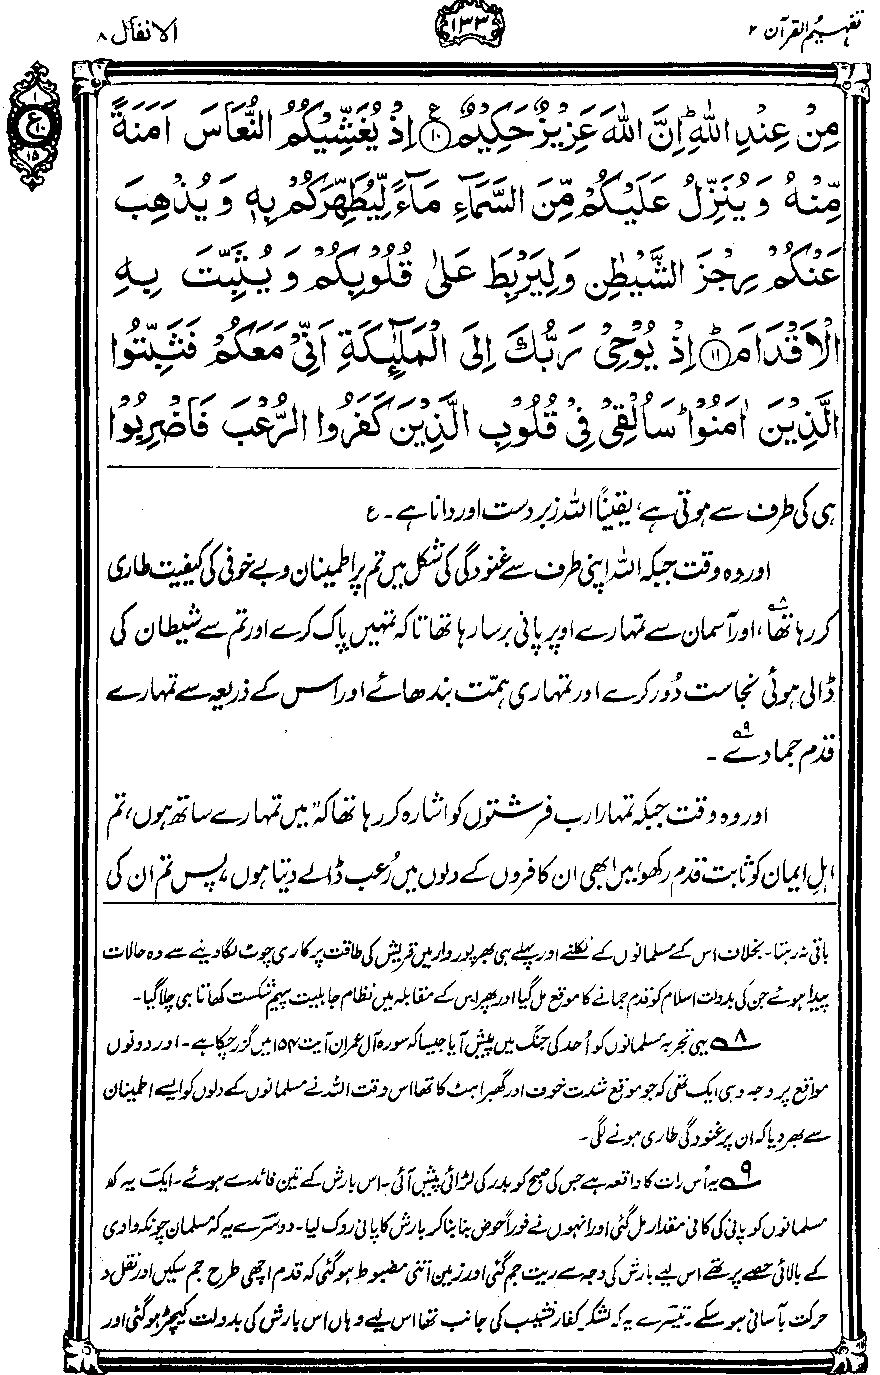 تفہیم القرآن ۲
۱۳۳
الانفال ۸
۱
ع
۱۰
۱۵
مِنْ عِنْدِ اللّٰهِ ؕ اِنَّ اللّٰهَ عَزِيْزٌ حَكِيْمٌ ۝۱۰ اِذْ يُغَشِّيْكُمُ النُّعَاسَ اَمَنَةً
مِّنْهُ وَيُنَزِّلُ عَلَيْكُمْ مِّنَ السَّمَآءِ مَآءً لِّيُطَهِّرَكُمْ بِهٖ وَيُذْهِبَ
عَنْكُمْ رِجْزَ الشَّيْطٰنِ وَلِيَرْبِطَ عَلٰى قُلُوْبِكُمْ وَيُثَبِّتَ بِهِ
الْاَقْدَامَ ؕ۝۱۱ اِذْ يُوْحِىْ رَبُّكَ اِلَى الْمَلٰٓئِكَةِ اَنِّىْ مَعَكُمْ فَثَبِّتُوا
الَّذِيْنَ اٰمَنُوْا ؕ سَاُلْقِىْ فِىْ قُلُوْبِ الَّذِيْنَ كَفَرُوا الرُّعْبَ فَاضْرِبُوْا
ہی کی طرف سے ہوتی ہے، یقیناً اللہ زبردست اور دانا ہے۔ ع
اور وہ وقت جبکہ اللہ اپنی طرف سے غنودگی کی شکل میں تم پر اطمینان و بے خوفی کی کیفیت طاری
کر رہا تھا،۸ اور آسمان سے تمہارے اوپر پانی برسا رہا تھا تاکہ تمہیں پاک کرے اور تم سے شیطان کی
ڈالی ہوئی نجاست دُور کرے اور تمہاری ہمّت بندھائے اور اس کے ذریعہ سے تمہارے
قدم جما دے۹۔
اور وہ وقت جبکہ تمہارا رب فرشتوں کو اشارہ کر رہا تھا کہ ”میں تمہارے ساتھ ہوں، تم
اہلِ ایمان کو ثابت قدم رکھو، میں ابھی ان کافروں کے دلوں میں رُعب ڈالے دیتا ہوں، پس تم ان کی
باقی نہ رہتا۔ بخلاف اس کے مسلمانوں کے نکلنے اور پہلے ہی بھرپور وار میں قریش کی طاقت پر کاری چوٹ لگا دینے سے وہ حالات
پیدا ہوئے جن کی بدولت اسلام کو قدم جمانے کا موقع مل گیا اور پھر اس کے مقابلہ میں نظام جاہلیت پیہم شکست کھاتا ہی چلا گیا۔
۸ یہی تجربہ مسلمانوں کو اُحد کی جنگ میں پیش آیا جیسا کہ سورہ آل عمران آیت ۱۵۴ میں گزر چکا ہے۔ اور دونوں
مواقع پر وجہ وہی ایک تھی کہ جو موقع شدت خوف اور گھبراہٹ کا تھا اس وقت اللہ نے مسلمانوں کے دلوں کو ایسے اطمینان
سے بھر دیا کہ ان پر غنودگی طاری ہونے لگی۔
۹ یہ اُس رات کا واقعہ ہے جس کی صبح کو بدر کی لڑائی پیش آئی۔ اس بارش کے تین فائدے ہوئے۔ ایک یہ کہ
مسلمانوں کو پانی کی کافی مقدار مل گئی اور انہوں نے فوراً حوض بنا بنا کر بارش کا پانی روک لیا۔ دوسرے یہ کہ مسلمان چونکہ وادی
کے بالائی حصے پر تھے اس لیے بارش کی وجہ سے ریت جم گئی اور زمین اتنی مضبوط ہو گئی کہ قدم اچھی طرح جم سکیں اور نقل و
حرکت بآسانی ہو سکے۔ تیسرے یہ کہ لشکر کفار نشیب کی جانب تھا اس لیے وہاں اس بارش کی بدولت کیچڑ ہو گئی اور